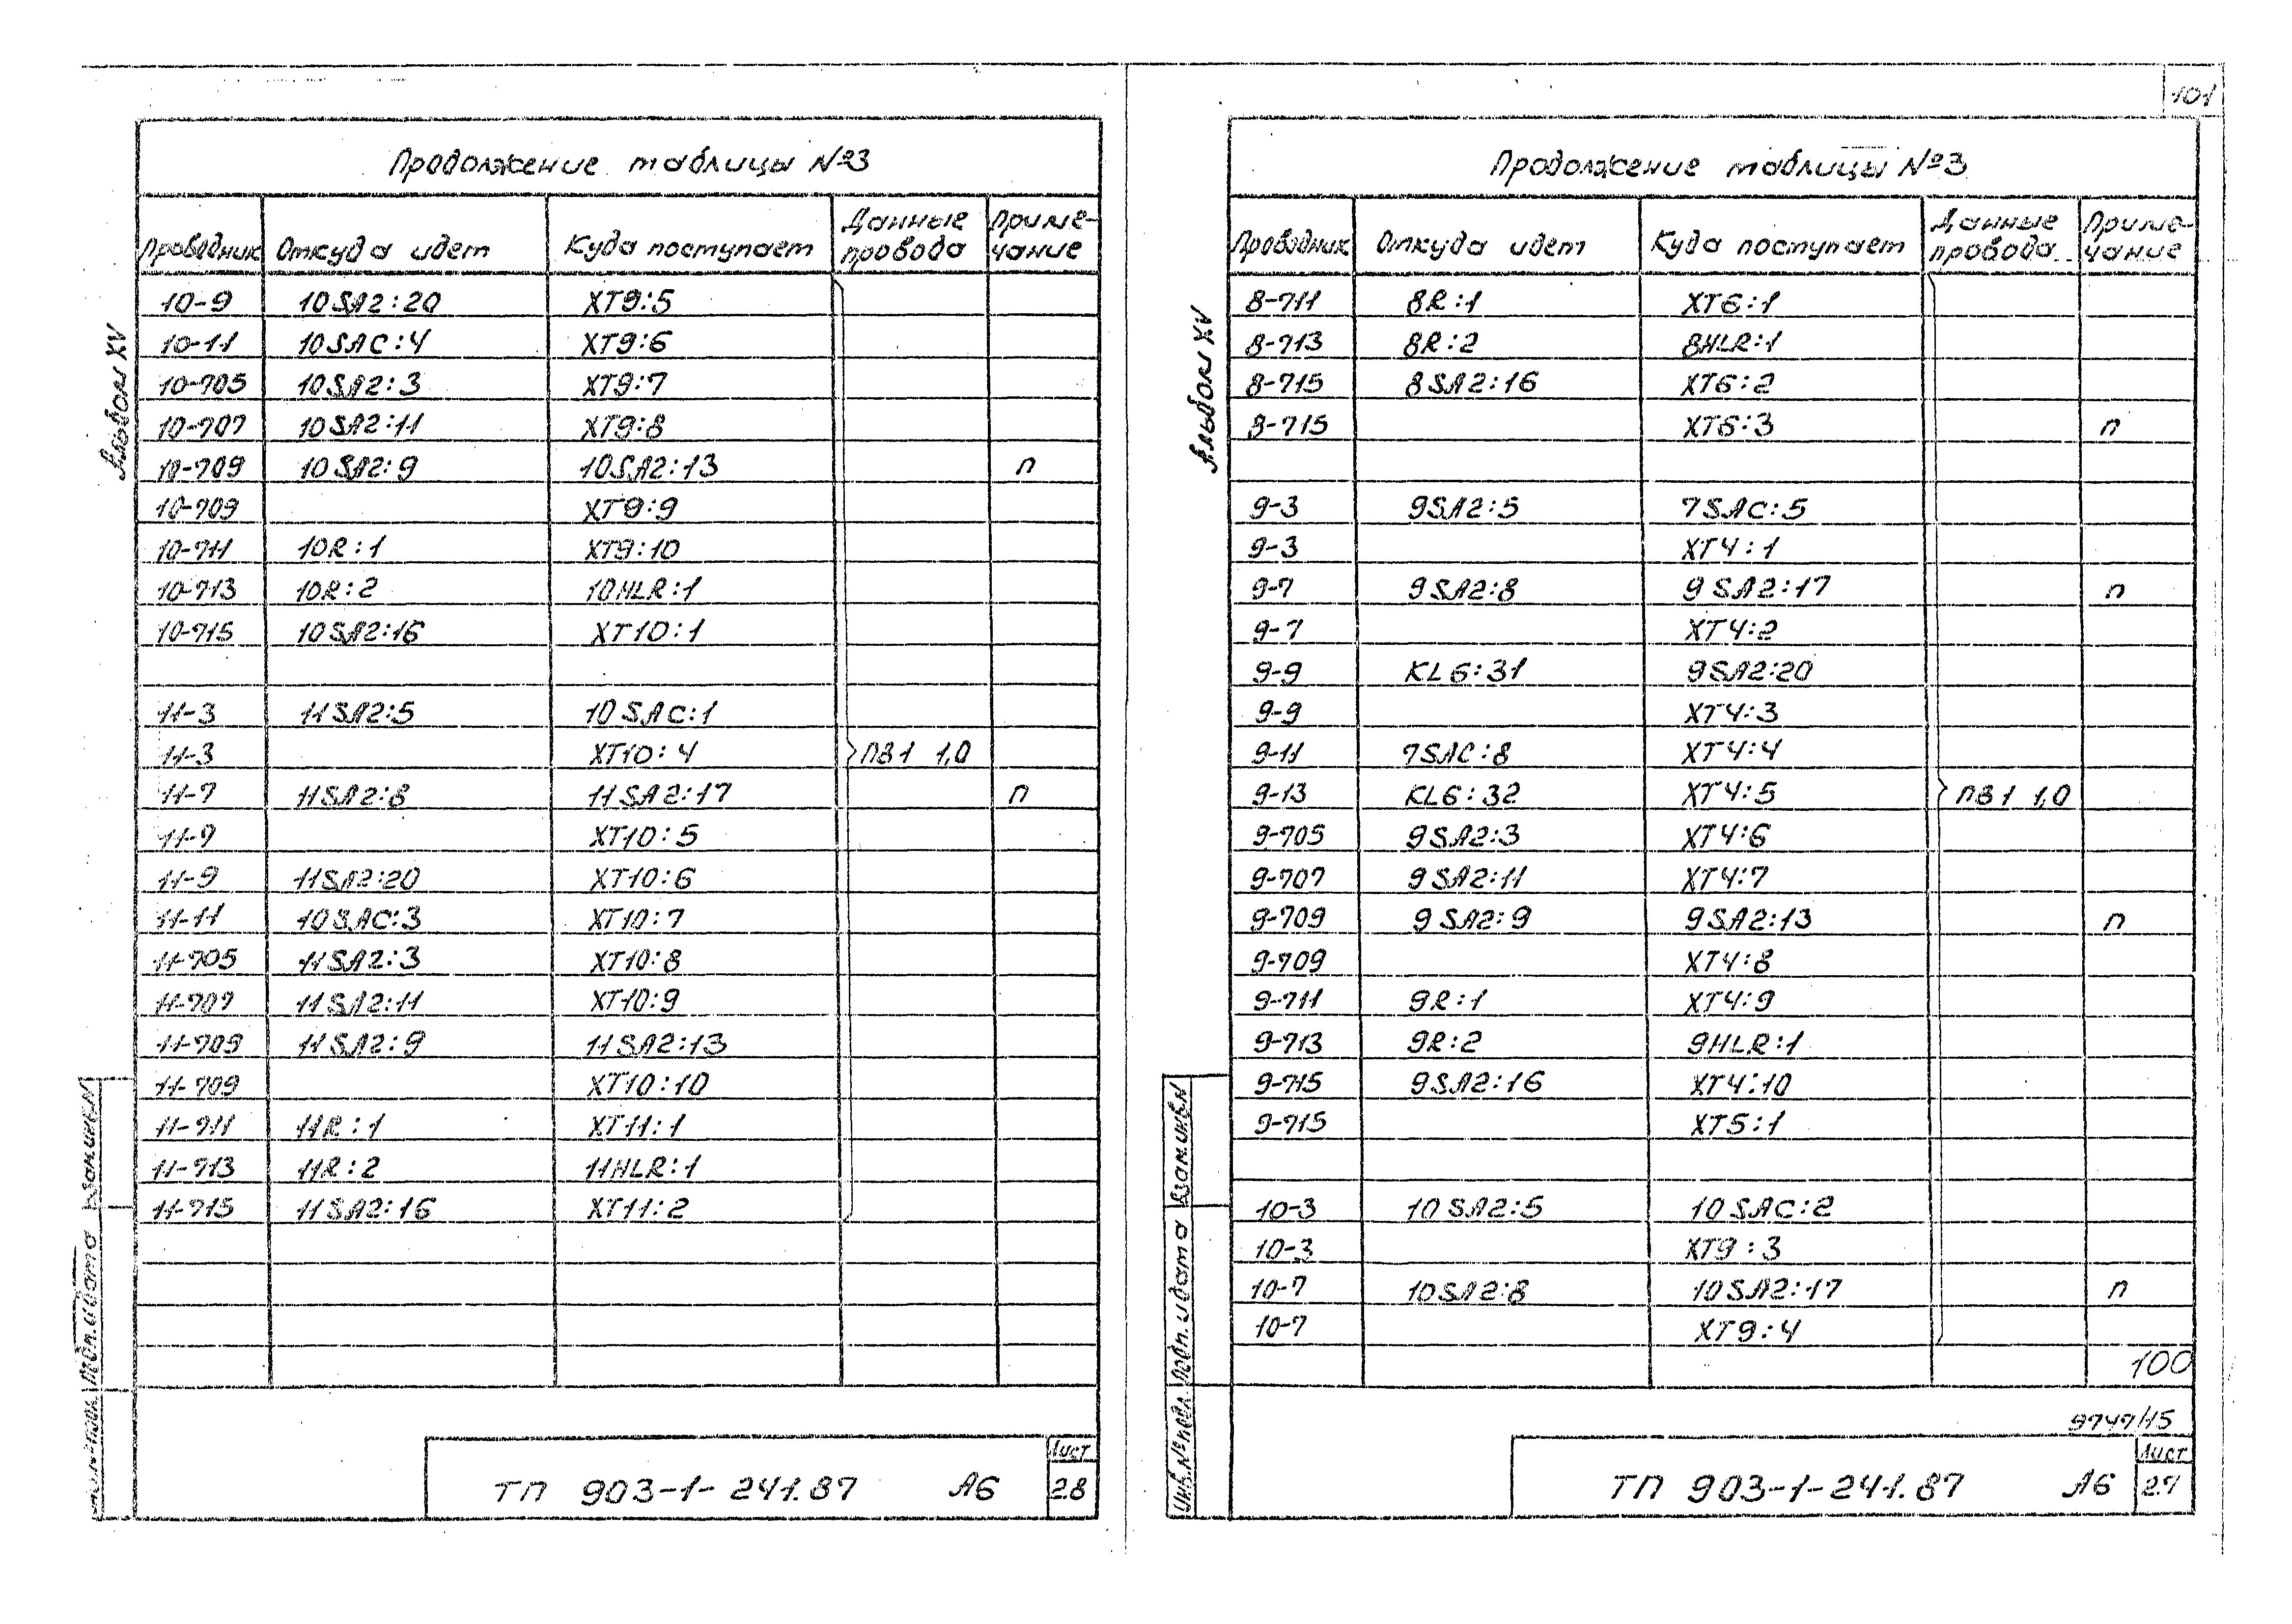 101
Продолжение таблицы №3
Проводник Откуда идет Куда поступает Данные провода Приме-чание
10-9 10SA2:20 XT9:5
10-11 10SAC:4 XT9:6
10-705 10SA2:3 XT9:7
10-707 10SA2:11 XT9:8
10-709 10SA2:9 10SA2:13 п
10-709 XT9:9
10-711 10R:1 XT9:10
10-713 10R:2 10HLR:1
10-715 10SA2:16 XT10:1
11-3 11SA2:5 10SAC:1
11-3 XT10:4 ПВ1 1,0
11-7 11SA2:8 11SA2:17 п
11-7 XT10:5
11-9 11SA2:20 XT10:6
11-11 10SAC:3 XT10:7
11-705 11SA2:3 XT10:8
11-707 11SA2:11 XT10:9
11-709 11SA2:9 11SA2:13
11-709 XT10:10
11-711 11R:1 XT11:1
11-713 11R:2 11HLR:1
11-715 11SA2:16 XT11:2
Альбом XV
Взам.инв.N
Подп. и дата
ТП 903-1-241.87 А6
Лист
28
Продолжение таблицы №3
Проводник Откуда идет Куда поступает Данные провода Приме-чание
8-711 8R:1 XT6:1
8-713 8R:2 8HLR:1
8-715 8SA2:16 XT6:2
8-715 XT6:3 п
9-3 9SA2:5 7SAC:5
9-3 XT4:1
9-7 9SA2:8 9SA2:17 п
9-7 XT4:2
9-9 KL6:31 9SA2:20
9-9 XT4:3
9-11 7SAC:8 XT4:4
9-13 KL6:32 XT4:5 ПВ1 1,0
9-705 9SA2:3 XT4:6
9-707 9SA2:11 XT4:7
9-709 9SA2:9 9SA2:13 п
9-709 XT4:8
9-711 9R:1 XT4:9
9-713 9R:2 9HLR:1
9-715 9SA2:16 XT4:10
9-715 XT5:1
10-3 10SA2:5 10SAC:2
10-3 XT9:3
10-7 10SA2:8 10SA2:17 п
10-7 XT9:4
100
Альбом XV
Взам.инв.N
Подп. и дата
Инв.№ подл.
9747/15
ТП 903-1-241.87 А6
Лист
27